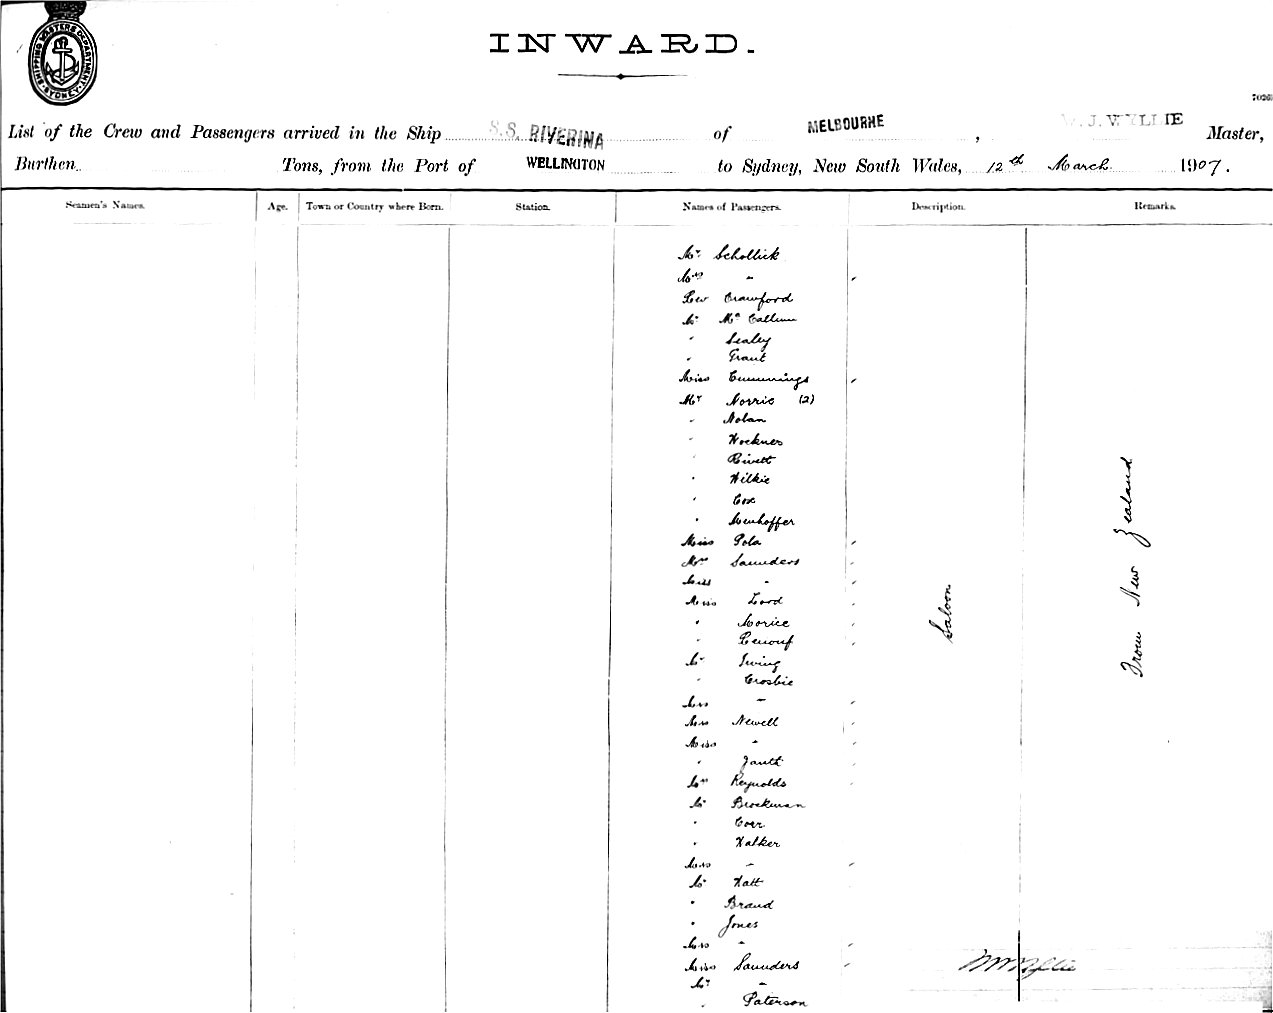 SHIPPING MASTERS DEPARTMENT SYDNEY
INWARD.
7026
List of the Crew and Passengers arrived in the Ship S.S. RIVERINA of MELBOURNE, W. J. WYLLIE Master,
Burthen Tons, from the Port of WELLINGTON to Sydney, New South Wales, 12th March 1907.
Seamen's Names. Age. Town or Country where Born. Station. Names of Passengers. Description. Remarks.
Mr Schollick
Mrs "
Rev Crawford
Mr McCallum
" Sealey
" Grant
Miss Cummings
Mr Norris (2)
" Nolan
" Hockner
" Rivett
" Wilkie
" Cox
"
Miss Pola
Mrs Saunders
Miss "
Miss Lord
" Morice
" Lenouf
Mr Irving
" Crosbie
Mrs "
Mrs Newell
Miss "
"
Mrs Reynolds
Mr Brockman
"
" Walker
Mrs "
Mr Watt
" Braud
" Jones
Mrs "
Miss Saunders
Mr "
" Paterson
Saloon
From New Zealand